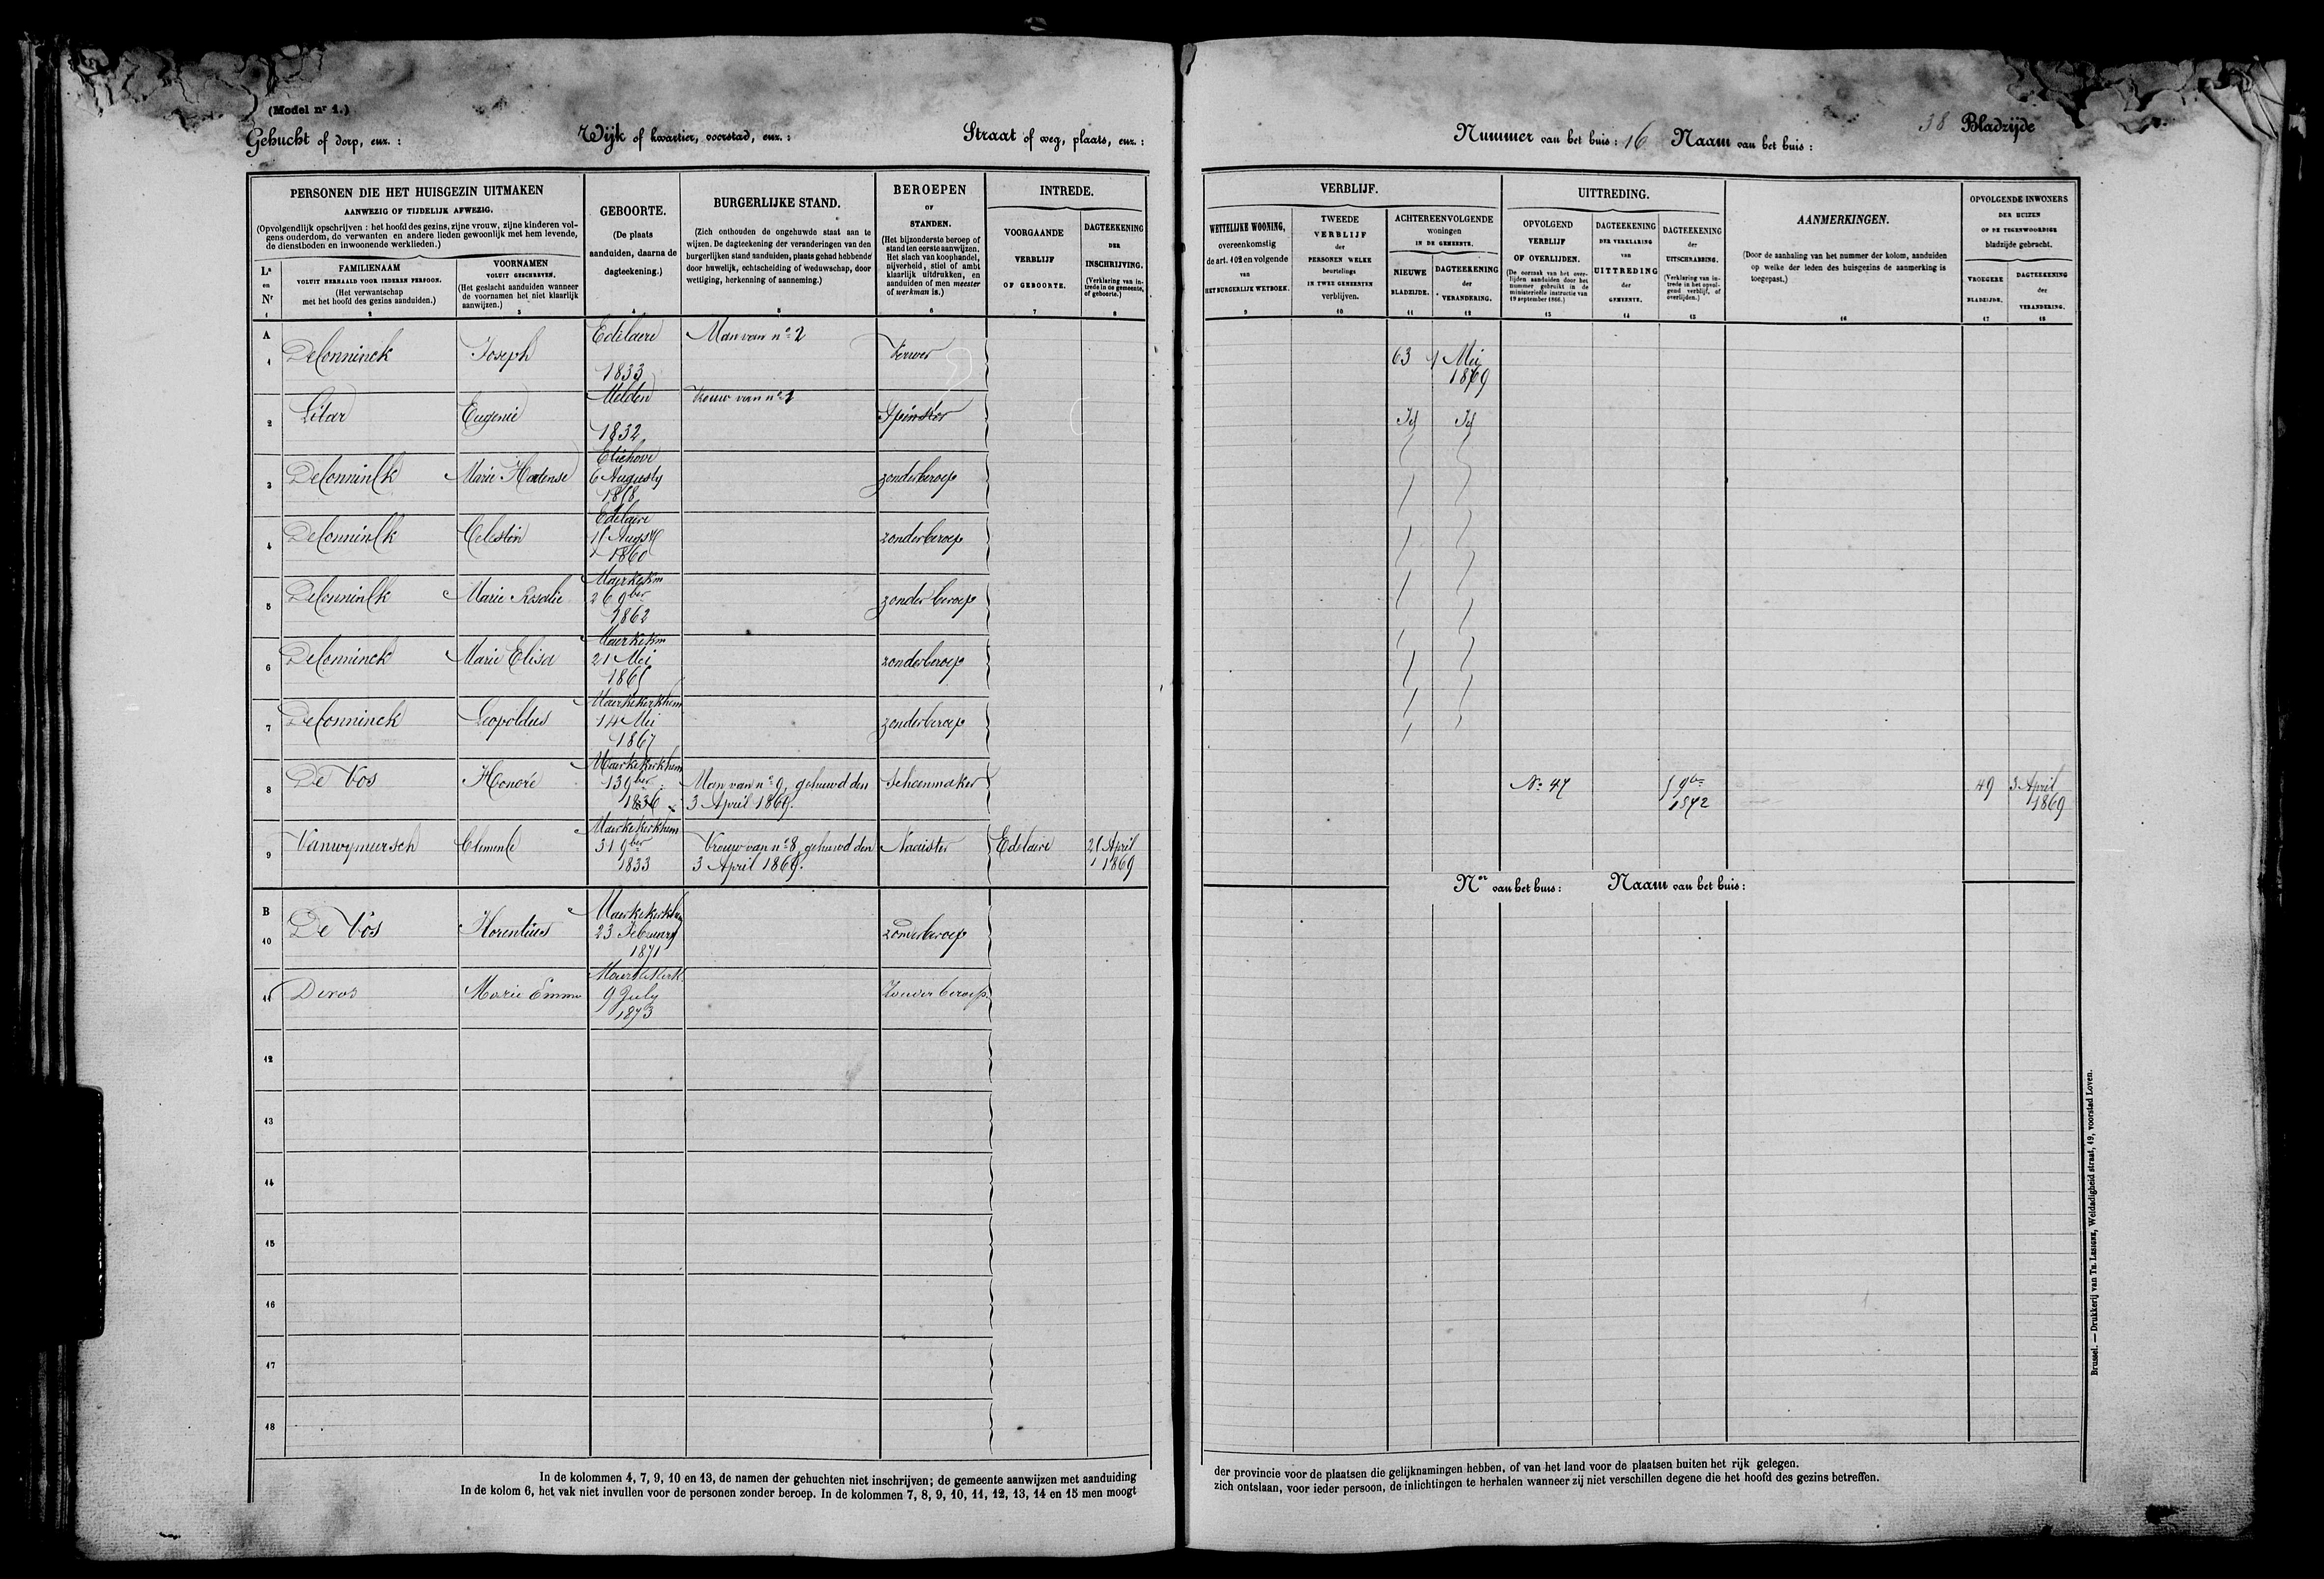 (Model nr 1.)
Gehucht of dorp, enz. :
Wijk of kwartier, voorstad, enz. :
Straat of weg, plaats, enz. :
Nummer van het huis : 16 Naam van het huis :
38 Bladzijde
PERSONEN DIE HET HUISGEZIN UITMAKEN
AANWEZIG OF TIJDELIJK AFWEZIG.
(Opvolgendlijk opschrijven : het hoofd des gezins, zijne vrouw, zijne kinderen vol-
gens ouderdom, de verwanten en andere lieden gewoonlijk met hem levende,
de dienstboden en inwoonende werklieden.)
La
en
Nr
1
FAMILIENAAM
VOLUIT HERHAALD VOOR IEDEREN PERSOON.
(Het verwantschap
met het hoofd des gezins aanduiden.)
2
VOORNAMEN
VOLUIT GESCHREVEN.
(Het geslacht aanduiden wanneer
de voornamen het niet klaarlijk
aanwijzen.)
3
GEBOORTE.
(De plaats
aanduiden, daarna de
dagteekening.)
4
BURGERLIJKE STAND.
(Zich onthouden de ongehuwde staat aan te
wijzen. De dagteekening der veranderingen van den
burgerlijken stand aanduiden, plaats gehad hebbende
door huwelijk, echtscheiding of weduwschap, door
wettiging, herkenning of aanneming.)
5
BEROEPEN
OF
STANDEN.
(Het bijzonderste beroep of
stand ten eerste aanwijzen.
Het slach van koophandel,
nijverheid, stiel of ambt
klaarlijk uitdrukken, en
aanduiden of men meester
of werkman is.)
6
INTREDE.
VOORGAANDE
VERBLIJF
OF GEBOORTE.
7
DAGTEEKENING
DER
INSCHRIJVING.
(Verklaring van in-
trede in de gemeente,
of geboorte.)
8
VERBLIJF.
WETTELIJKE WOONING,
overeenkomstig
de art. 102 en volgende
van
HET BURGERLIJK WETBOEK.
9
TWEEDE
VERBLIJF
der
PERSONEN WELKE
beurtelings
IN TWEE GEMEENTEN
verblijven.
10
ACHTEREENVOLGENDE
woningen
IN DE GEMEENTE.
NIEUWE
BLADZIJDE.
11
DAGTEEKENING
der
VERANDERING.
12
UITTREDING.
OPVOLGEND
VERBLIJF
OF OVERLIJDEN.
(De oorzaak van het over-
lijden aanduiden door het
nummer gebruikt in de
ministeriëele instructie van
19 september 1866.)
13
DAGTEEKENING
DER VERKLARING
van
UITTREDING
der
GEMEENTE.
14
DAGTEEKENING
der
UITSCHRABBING.
(Verklaring van in-
trede in het opvol-
gend verblijf, of
overlijden.)
15
AANMERKINGEN.
(Door de aanhaling van het nummer der kolom, aanduiden
op welke der leden des huisgezins de aanmerking is
toegepast.)
16
OPVOLGENDE INWONERS
DER HUIZEN
OP DE TEGENWOORDIGE
bladzijde gebracht.
VROEGERE
BLADZIJDE.
17
DAGTEEKENING
der
VERANDERING.
18
A
1 DeConninck Joseph Edelaere 1833 Man van no 2 Verwer 63 1 Mei 1869
2 Litar Eugenie Melden 1832 Vrouw van no 1 Spinster Id Id
3 DeConninck Marie Hortense Etichove 6 Augusty 1858 zonder beroep
4 DeConninck Celestin Edelaere 1860 zonder beroep
5 DeConninck Marie Rosalie 26 9ber 1862 zonder beroep
6 DeConninck Marie Elisa 21 Mei 1865 zonder beroep
7 DeConninck Leopoldus Maerkekerkhem 14 Mei 1867 zonder beroep
8 De Vos Honoré Maerkekerkhem 13 9ber 1836 Man van no 9, gehuwd den 3 April 1869. Schoenmaker No 47 5 9bre 1872 49 3 April 1869
9 Vanwymeersch Clemence Maerkekerkhem 31 9ber 1833 Vrouw van no 8, gehuwd den 3 April 1869. Naaister Edelaere 21 April 1869
Ner van het huis : Naam van het huis :
B
10 De Vos Florentius 23 February 1871 zonder beroep
11 Devos Marie Emma Maerkekerk 9 July 1873 Zonder beroep
12
13
14
15
16
17
18
In de kolommen 4, 7, 9, 10 en 13, de namen der gehuchten niet inschrijven; de gemeente aanwijzen met aanduiding
In de kolom 6, het vak niet invullen voor de personen zonder beroep. In de kolommen 7, 8, 9, 10, 11, 12, 13, 14 en 15 men moogt
der provincie voor de plaatsen die gelijknamingen hebben, of van het land voor de plaatsen buiten het rijk gelegen.
zich ontslaan, voor ieder persoon, de inlichtingen te herhalen wanneer zij niet verschillen degene die het hoofd des gezins betreffen.
Brussel. — Drukkerij van Th. Lesigne, Weldadigheid straat, 49, voorstad Loven.